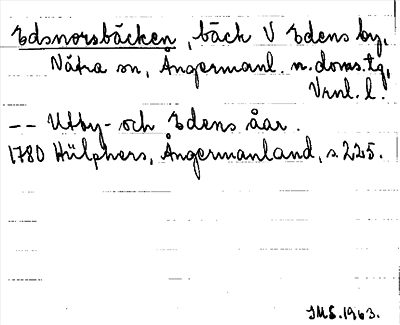 Edsnorsbäcken, bäck V Edens by,
Nätra sn, Ångermanl. n. doms. tg,
Vrnl. l.
-- Utby- och Edens åar.
1780 Hülphers, Ångermanland, s. 225.
IMS. 1963.